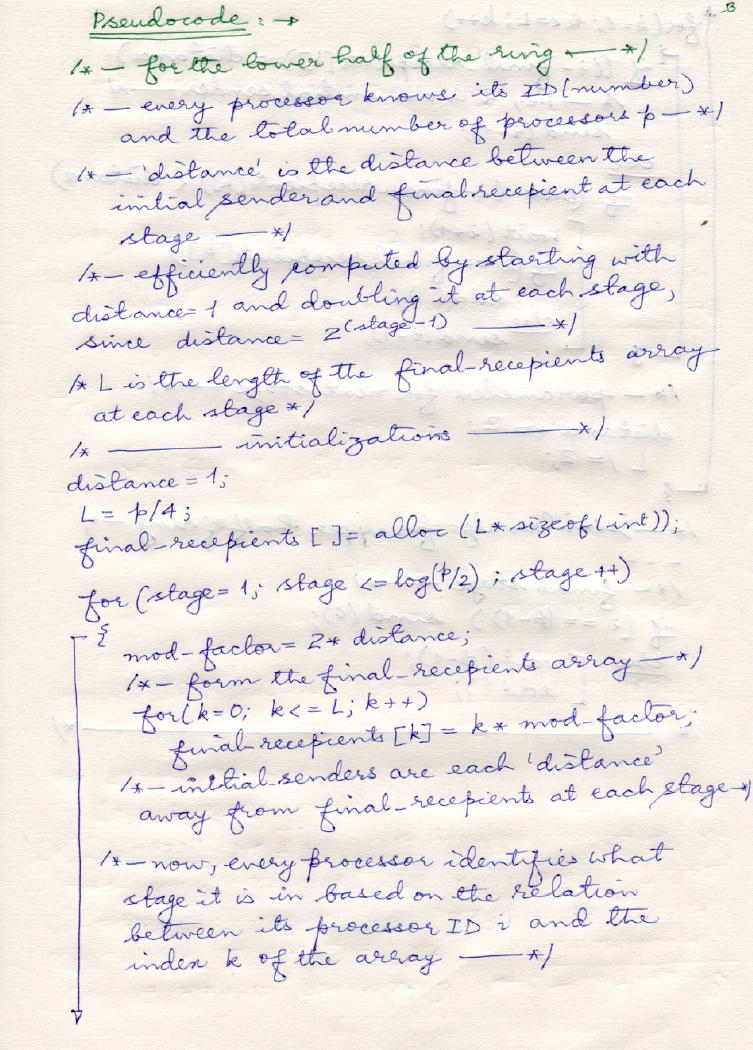 Pseudocode : →
/* — for the lower half of the ring — */
/* — every processor knows its ID (number)
and the total number of processors p — */
/* — 'distance' is the distance between the
initial sender and final recepient at each
stage — */
/* — efficiently computed by starting with
distance = 1 and doubling it at each stage,
since distance = 2^(stage-1) — */
/* L is the length of the final-recepients array
at each stage */
/* — initializations — */
distance = 1;
L = p/4;
final-recepients [ ] = alloc (L * sizeof(int));
for (stage = 1; stage <= log(p/2) ; stage ++)
{
mod-factor = 2 * distance;
/* — form the final-recepients array — */
for(k=0; k<=L; k++)
final-recepients [k] = k * mod-factor;
/* — initial senders are each 'distance'
away from final-recepients at each stage — */
/* — now, every processor identifies what
stage it is in based on the relation
between its processor ID i and the
index k of the array — */